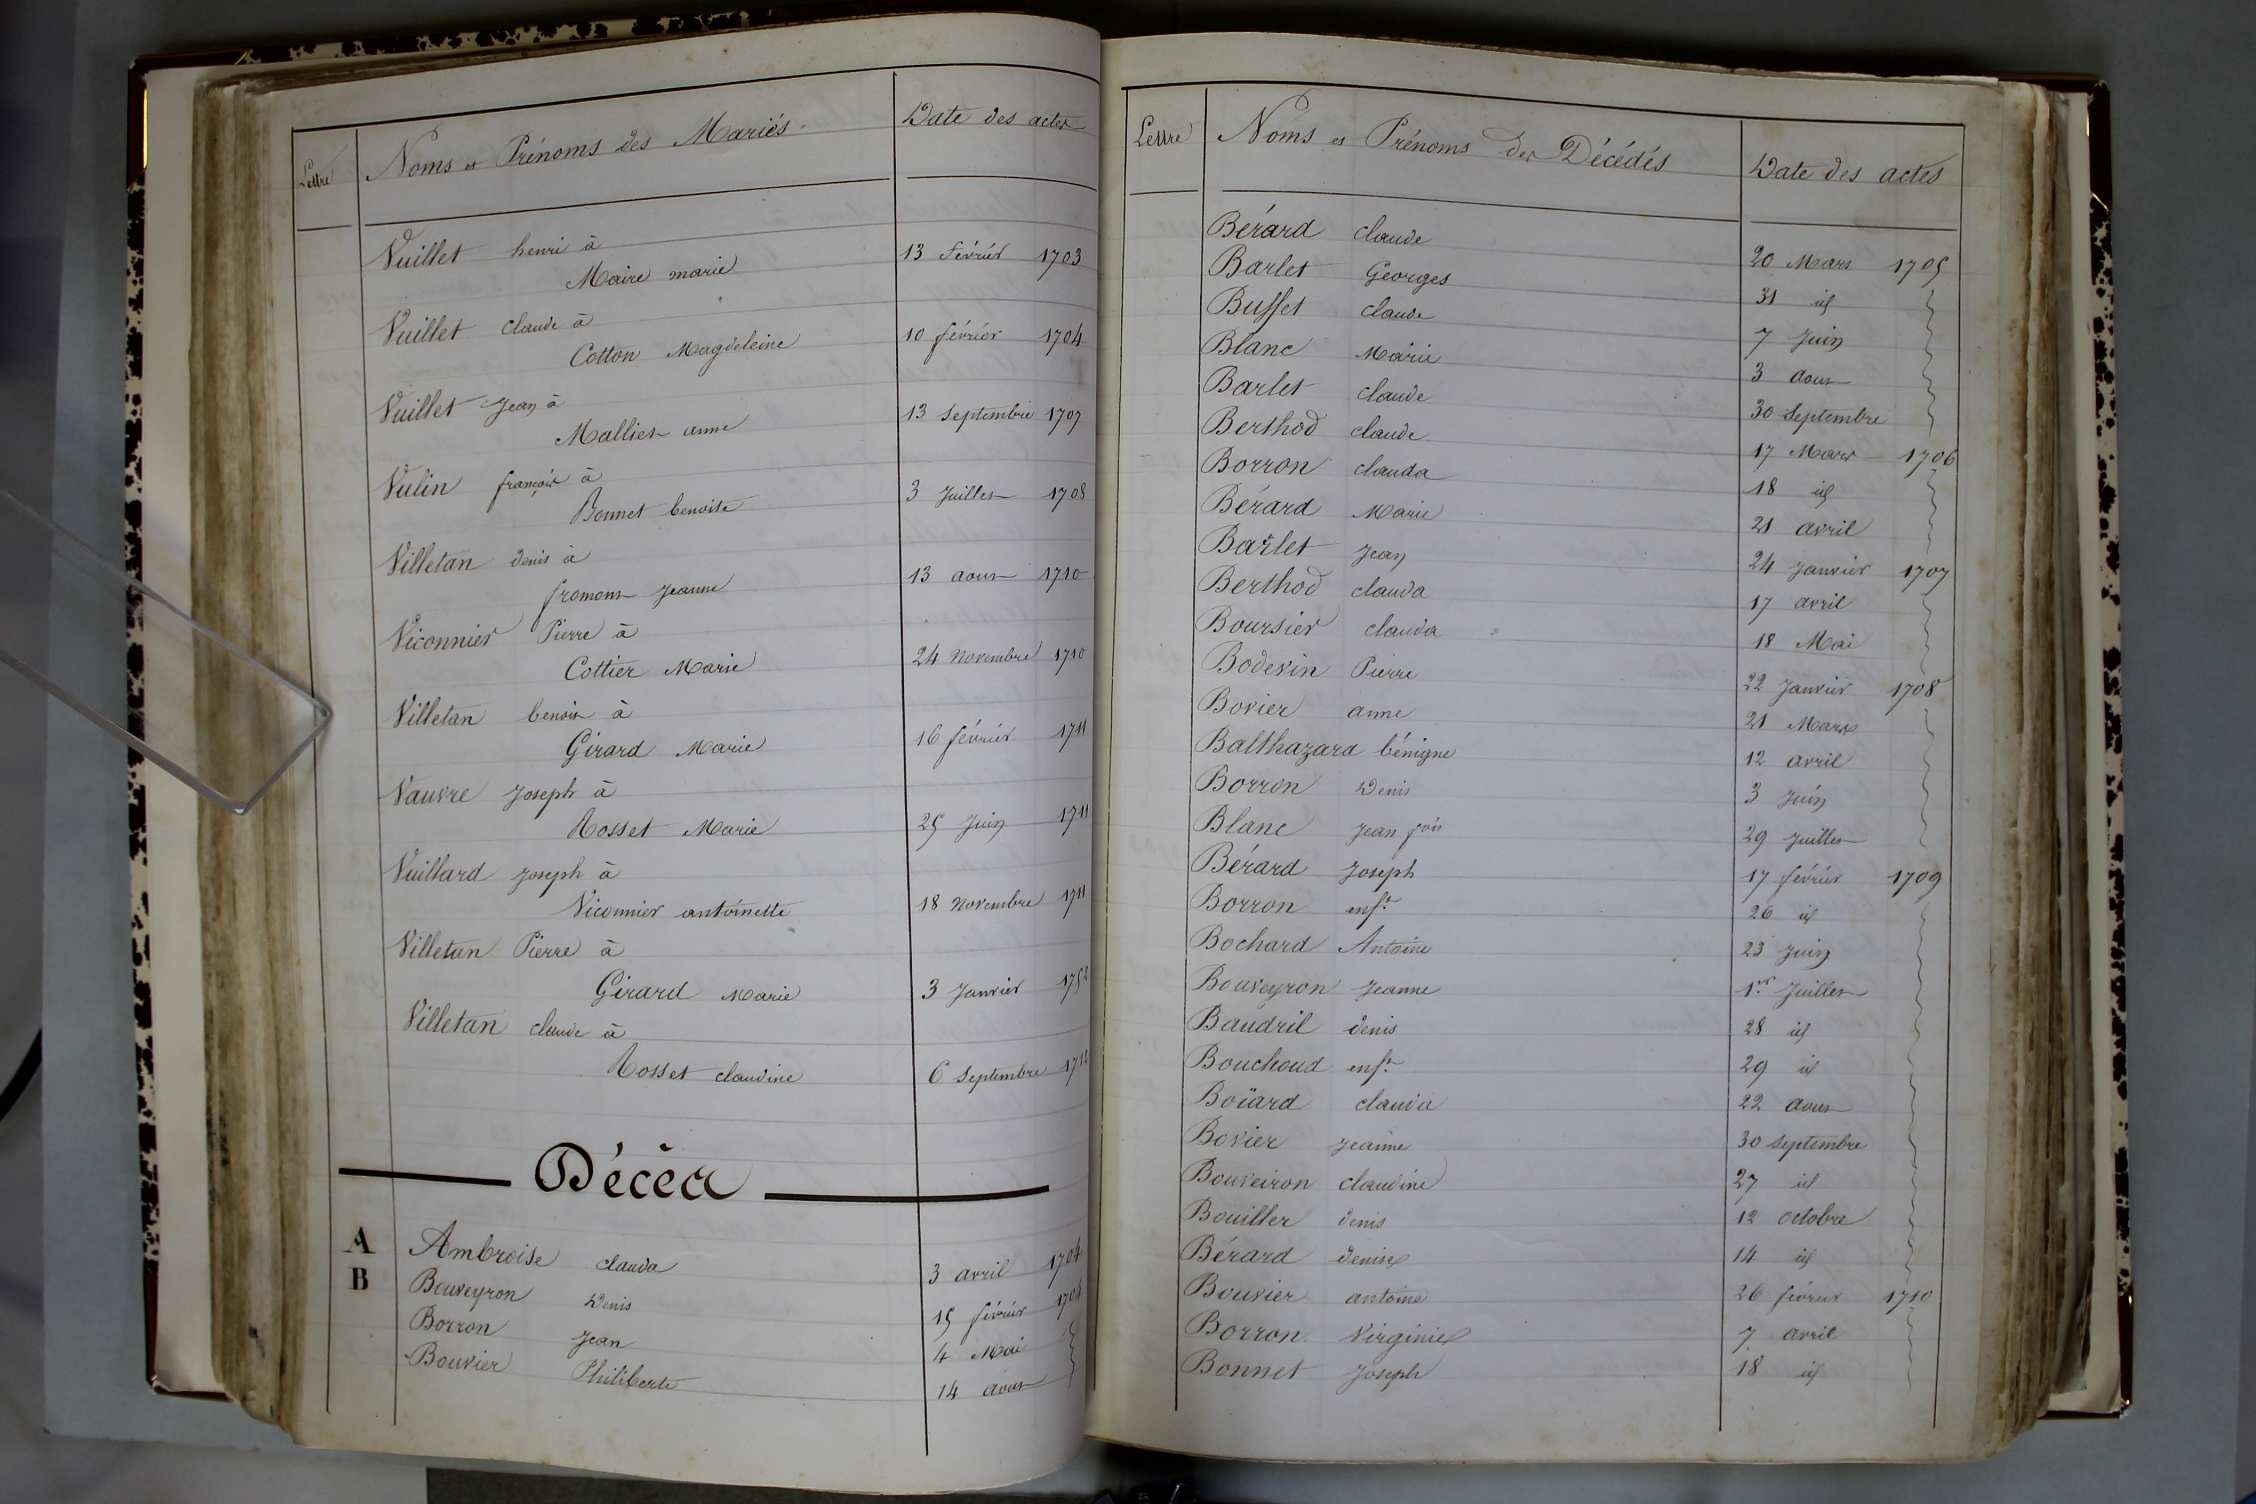 Lettre Noms et Prénoms des Mariés Date des actes
Vuillet henri à
Maire marie 13 Février 1703
Vuillet claude à
Cotton Magdeleine 10 février 1704
Vuillet Jean à
Mallier anne 13 Septembre 1707
Vulin françois à
Bonnet benoite 3 Juillet 1708
Villetan denis à
fromont Jeanne 13 aout 1710
Viconnier Pierre à
Cottier Marie 24 Novembre 1710
Villetan benoit à
Girard Marie 16 février 1711
Vauvre Joseph à
Rosset Marie 25 Juin 1711
Vuillard Joseph à
Viconnier antoinette 18 Novembre 1711
Villetan Pierre à
Girard Marie 3 Janvier
Villetan claude à
Rosset claudine 6 Septembre 1712
Décès
A Ambroise clauda 3 avril 1704
B Bouveyron Denis 15 février 1704
Borron Jean 4 Mai
Bouvier Philiberte 14 aout
Lettre Noms et Prénoms des Décédés Date des actes
Bérard claude 20 Mars 1705
Barlet Georges 31 id
Buffet claude 7 Juin
Blanc Marie 3 aout
Barlet claude 30 Septembre
Berthod claude 17 Mars 1706
Borron clauda 18 id
Bérard Marie 21 avril
Barlet Jean 24 Janvier 1707
Berthod clauda 17 avril
Boursier clauda 18 Mai
Bodevin Pierre 22 Janvier 1708
Bovier anne 21 Mars
Balthazard bénigne 12 avril
Borron Denis 3 Juin
Blanc Jean fois 29 Juillet
Bérard Joseph 17 février 1709
Borron enft 26 id
Bochard Antoine 23 Juin
Bouveyron Jeanne 1er Juillet
Baudril denis 28 id
Bouchoud enft 29 id
Boïard clauda 22 aout
Bovier Jeanne 30 Septembre
Bouveiron claudine 27 id
Bouiller denis 12 octobre
Bérard denise 14 id
Bouvier antoine 26 février 1710
Borron Virginie 7 avril
Bonnet Joseph 18 id